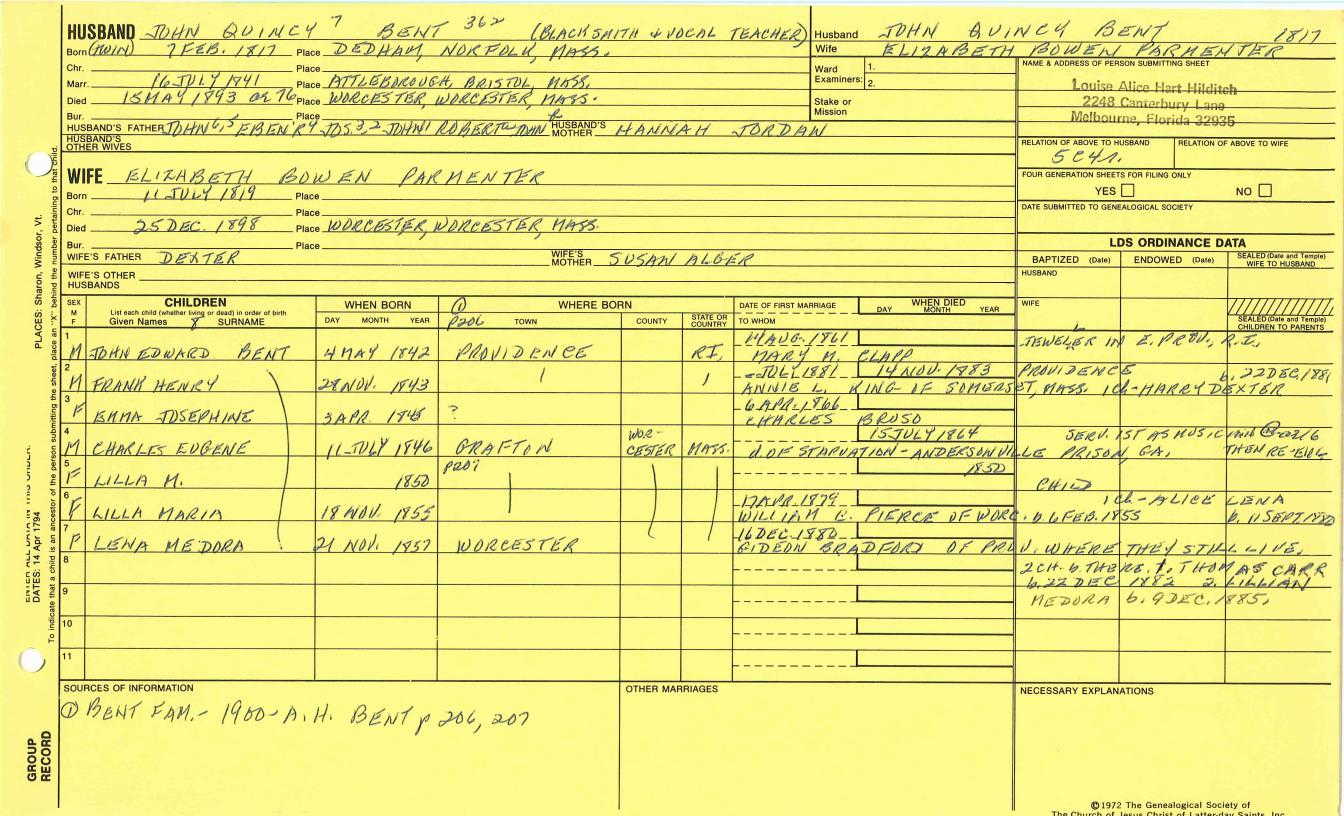 HUSBAND JOHN QUINCY 7 BENT 362 (BLACKSMITH & VOCAL TEACHER)
Born (TWIN) 7 FEB. 1817 Place DEDHAM, NORFOLK, MASS.
Chr. Place
Marr. 16 JULY 1841 Place ATTLEBOROUGH, BRISTOL, MASS.
Died 15 MAY 1893 or 76 Place WORCESTER, WORCESTER, MASS.
Bur. Place
HUSBAND'S FATHER JOHN 6,5 EBEN'R 4 JOS. 3,2 JOHN 1 ROBERT JOHN HUSBAND'S MOTHER HANNAH JORDAN
HUSBAND'S OTHER WIVES
Husband JOHN QUINCY BENT 1817
Wife ELIZABETH BOWEN PARMENTER
Ward Examiners: 1.
2.
Stake or Mission
NAME & ADDRESS OF PERSON SUBMITTING SHEET
Louise Alice Hart Hilditch
2248 Canterbury Lane
Melbourne, Florida 32935
RELATION OF ABOVE TO HUSBAND RELATION OF ABOVE TO WIFE
5C4r.
FOUR GENERATION SHEETS FOR FILING ONLY
YES NO
DATE SUBMITTED TO GENEALOGICAL SOCIETY
WIFE ELIZABETH BOWEN PARMENTER
Born 11 JULY 1819 Place
Chr. Place
Died 25 DEC. 1898 Place WORCESTER, WORCESTER, MASS.
Bur. Place
WIFE'S FATHER DEXTER WIFE'S MOTHER SUSAN ALGER
WIFE'S OTHER HUSBANDS
LDS ORDINANCE DATA
BAPTIZED (Date) ENDOWED (Date) SEALED (Date and Temple) WIFE TO HUSBAND
HUSBAND
WIFE
SEALED (Date and Temple) CHILDREN TO PARENTS
SEX M F CHILDREN WHEN BORN WHERE BORN DATE OF FIRST MARRIAGE WHEN DIED
List each child (whether living or dead) in order of birth
Given Names 8 SURNAME DAY MONTH YEAR ① P206 TOWN COUNTY STATE OR COUNTRY TO WHOM DAY MONTH YEAR
1 14 AUG. 1861
M JOHN EDWARD BENT 4 MAY 1842 PROVIDENCE RI. MARY M. CLAPP JEWELER IN E. PROV., R.I.
2 - JULY 1881 14 NOV. 1883 PROVIDENCE b. 22 DEC. 1881
M FRANK HENRY 28 NOV. 1843 ANNIE L. KING OF SOMERSET, MASS. 1 ch-HARRY DEXTER
3 6 APR. 1866
F EMMA JOSEPHINE 3 APR. 1845 ? CHARLES BRUSO
4 15 JULY 1864 SERV. 1ST AS MUSICIAN
M CHARLES EUGENE 11 JULY 1846 GRAFTON WOR- CESTER MASS. d. OF STARVATION - ANDERSONVILLE PRISON, GA. THEN RE-ENG
5 P207 1850
F LILLA M. 1850 CHILD
6 17 APR. 1879 1 ch - ALICE LENA
F LILLA MARIA 18 NOV. 1855 WILLIAM E. PIERCE OF WORC. b. 6 FEB. 1855 b. 11 SEPT. 1880
7 16 DEC. 1880
F LENA MEDORA 21 NOV. 1857 WORCESTER GIDEON BRADFORD OF PROV. WHERE THEY STILL LIVE.
8 2 CH. b. THERE. 1. THOMAS CARR
b. 22 DEC 1882 2. LILLIAN
9 MEDORA b. 9 DEC. 1885.
10
11
SOURCES OF INFORMATION
① BENT FAM. - 1900 - A.H. BENT p 206, 207
OTHER MARRIAGES
NECESSARY EXPLANATIONS
©1972 The Genealogical Society of
The Church of Jesus Christ of Latter-day Saints, Inc.
PLACES: Sharon, Windsor, Vt.
ENTER ALL DATA IN THIS ORDER:
DATES: 14 Apr 1794
To indicate that a child is an ancestor of the person submitting the sheet, place an "X" behind the number pertaining to that child.
GROUP RECORD